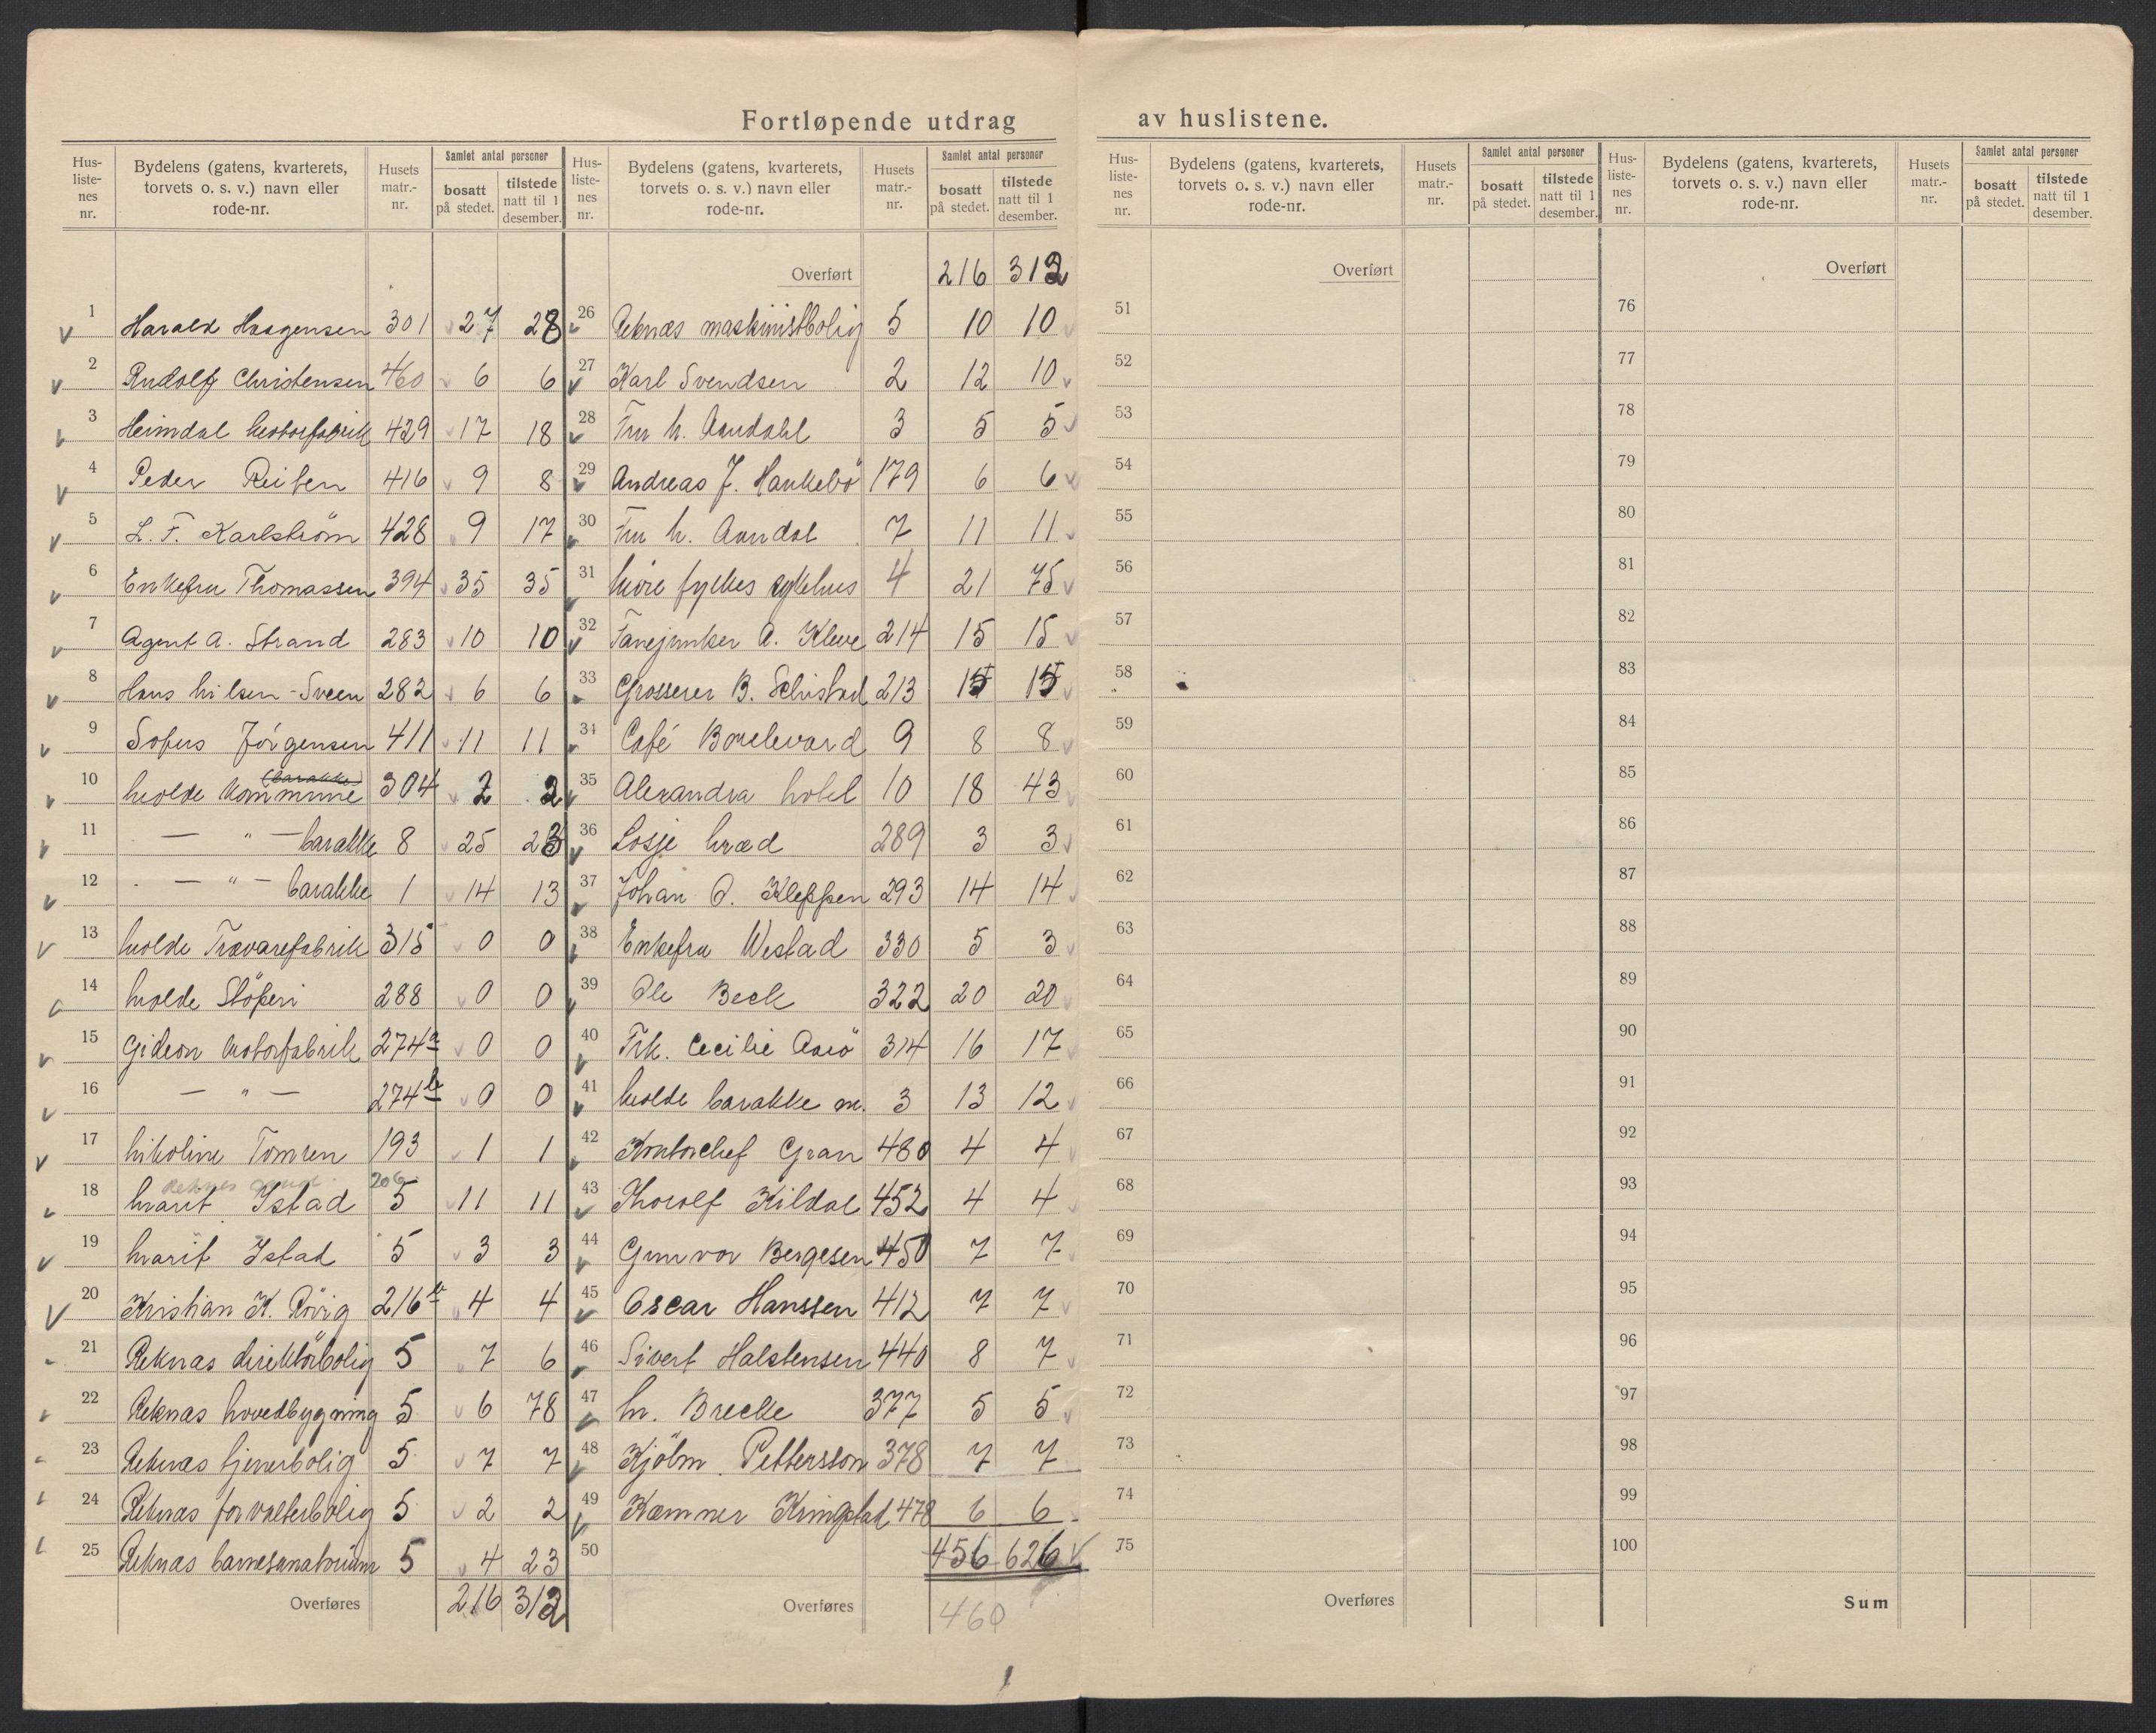 Fortløpende utdrag av huslistene.
Hus-listenes nr. | Bydelens (gatens, kvarterets, torvets o. s. v.) navn eller rode-nr. | Husets matr.-nr. | Samlet antal personer bosatt på stedet. | tilstede natt til 1 desember.
1 Harald Haagensen 301 27 28
2 Rudolf Christensen 460 6 6
3 Heimdal Motorfabrik 429 17 18
4 Peder Reiten 416 9 8
5 L. F. Karlström 428 9 17
6 Enkefru Thomassen 394 35 35
7 Agent A. Strand 283 10 10
8 Hans Nilsen-Sveen 282 6 6
9 Sofus Jörgensen 411 11 11
10 Molde Kommune (barakke) 304 2 2
11 — " — barakke 8 25 23
12 — " — barakke 1 14 13
13 Molde Trævarefabrik 315 0 0
14 Molde Stöperi 288 0 0
15 Gideon Motorfabrik 274a 0 0
16 — " — 274b 0 0
17 Nikoline Tomren 193 1 1
206
18 Marit Istad 5 11 11
19 Marit Istad 5 3 3
20 Kristian K. Rövig 216b 4 4
21 Reknæs direktörbolig 5 7 6
22 Reknæs hovedbygning 5 6 78
23 Reknæs tjenerbolig 5 7 7
24 Reknæs forvalterbolig 5 2 2
25 Reknæs barnesanatorium 5 4 23
Overføres 216 312
Hus-listenes nr. | Bydelens (gatens, kvarterets, torvets o. s. v.) navn eller rode-nr. | Husets matr.-nr. | Samlet antal personer bosatt på stedet. | tilstede natt til 1 desember.
Overført 216 312
26 Reknæs maskinistbolig 5 10 10
27 Karl Svendsen 2 12 10
28 Fru N. Aandahl 3 5 5
29 Andreas J. Haukebö 179 6 6
30 Fru N. Aandal 7 11 11
31 Möre fylkes sykehus 4 21 75
32 Fanejunker A. Kleve 214 15 15
33 Grosserer B. Schistad 213 15 15
34 Café Boulevard 9 8 8
35 Alexandra hotel 10 18 43
36 Losje Nræd 289 3 3
37 Johan O. Kleppen 293 14 14
38 Enkefru Westad 330 5 3
39 Ole Beck 322 20 20
40 Frk. Cecilie Aarö 314 16 17
41 Molde barakke nr. 3 13 12
42 Kontorchef Gran 480 4 4
43 Thorolf Kildal 452 4 4
44 Gunvor Bergesen 450 7 7
45 Oscar Hanssen 412 7 7
46 Sivert Halstensen 440 8 7
47 M. Brekke 377 5 5
48 Kjölm. Pettersson 378 7 7
49 Kæmner Kringstad 478 6 6
50 456 626
Overføres 460
Hus-listenes nr. | Bydelens (gatens, kvarterets, torvets o. s. v.) navn eller rode-nr. | Husets matr.-nr. | Samlet antal personer bosatt på stedet. | tilstede natt til 1 desember.
Overført
51
52
53
54
55
56
57
58
59
60
61
62
63
64
65
66
67
68
69
70
71
72
73
74
75
Overføres
Hus-listenes nr. | Bydelens (gatens, kvarterets, torvets o. s. v.) navn eller rode-nr. | Husets matr.-nr. | Samlet antal personer bosatt på stedet. | tilstede natt til 1 desember.
Overført
76
77
78
79
80
81
82
83
84
85
86
87
88
89
90
91
92
93
94
95
96
97
98
99
100
Sum